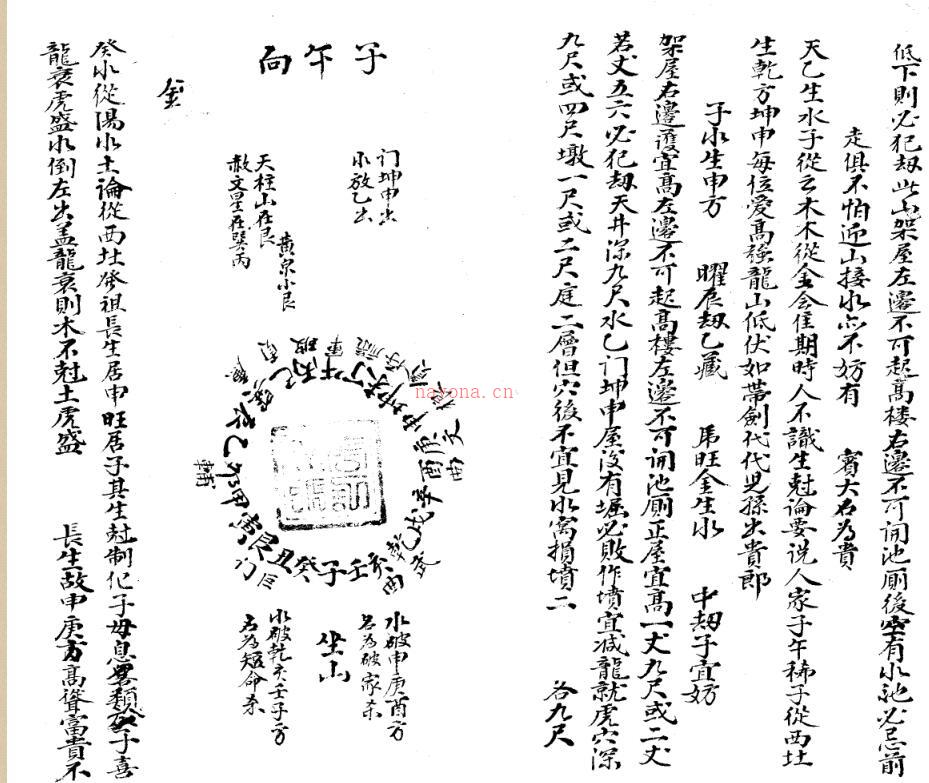 低下則必犯刼此山架屋左邉不可起髙楼右邉不可開池厠後空有水池必忌前
走俱不怕近山接水亦不妨有 賓大名為貴
天乙生水子從云木木從金会佳期時人不識生尅論要说人家子午稀子從西北
生乾方坤申每位爱髙強龍山低伏如带劍代代児孫出貴郎
子水生申方 曜辰刼乙藏 馬旺金生水 中刼子宜妨
架屋右邉護宜髙左邉不可起髙樓左邉不可開池厠正屋宜髙一丈九尺或二丈
若丈五六必犯刼天井深九尺水乙门坤申屋没有堀必敗作墳宜减龍就虎穴深
九尺或四尺墩一尺或二尺庭二層但穴後不宜見水窩損墳二 各九尺
子午向
门坤申出
水放乙出
黄泉水艮
天柱山在艮
赦文星在巽丙
金
nayona.cn
水破申庚酉方
名為破家杀
坐山
水破乾亥壬子方
名為短命杀
癸水從陽水土論從西北發祖長生居申旺居子其生尅制化子母息 類 子喜
龍衰虎盛水倒左出盖龍衰則木不尅土虎盛 長生故申庚方髙聳富貴不